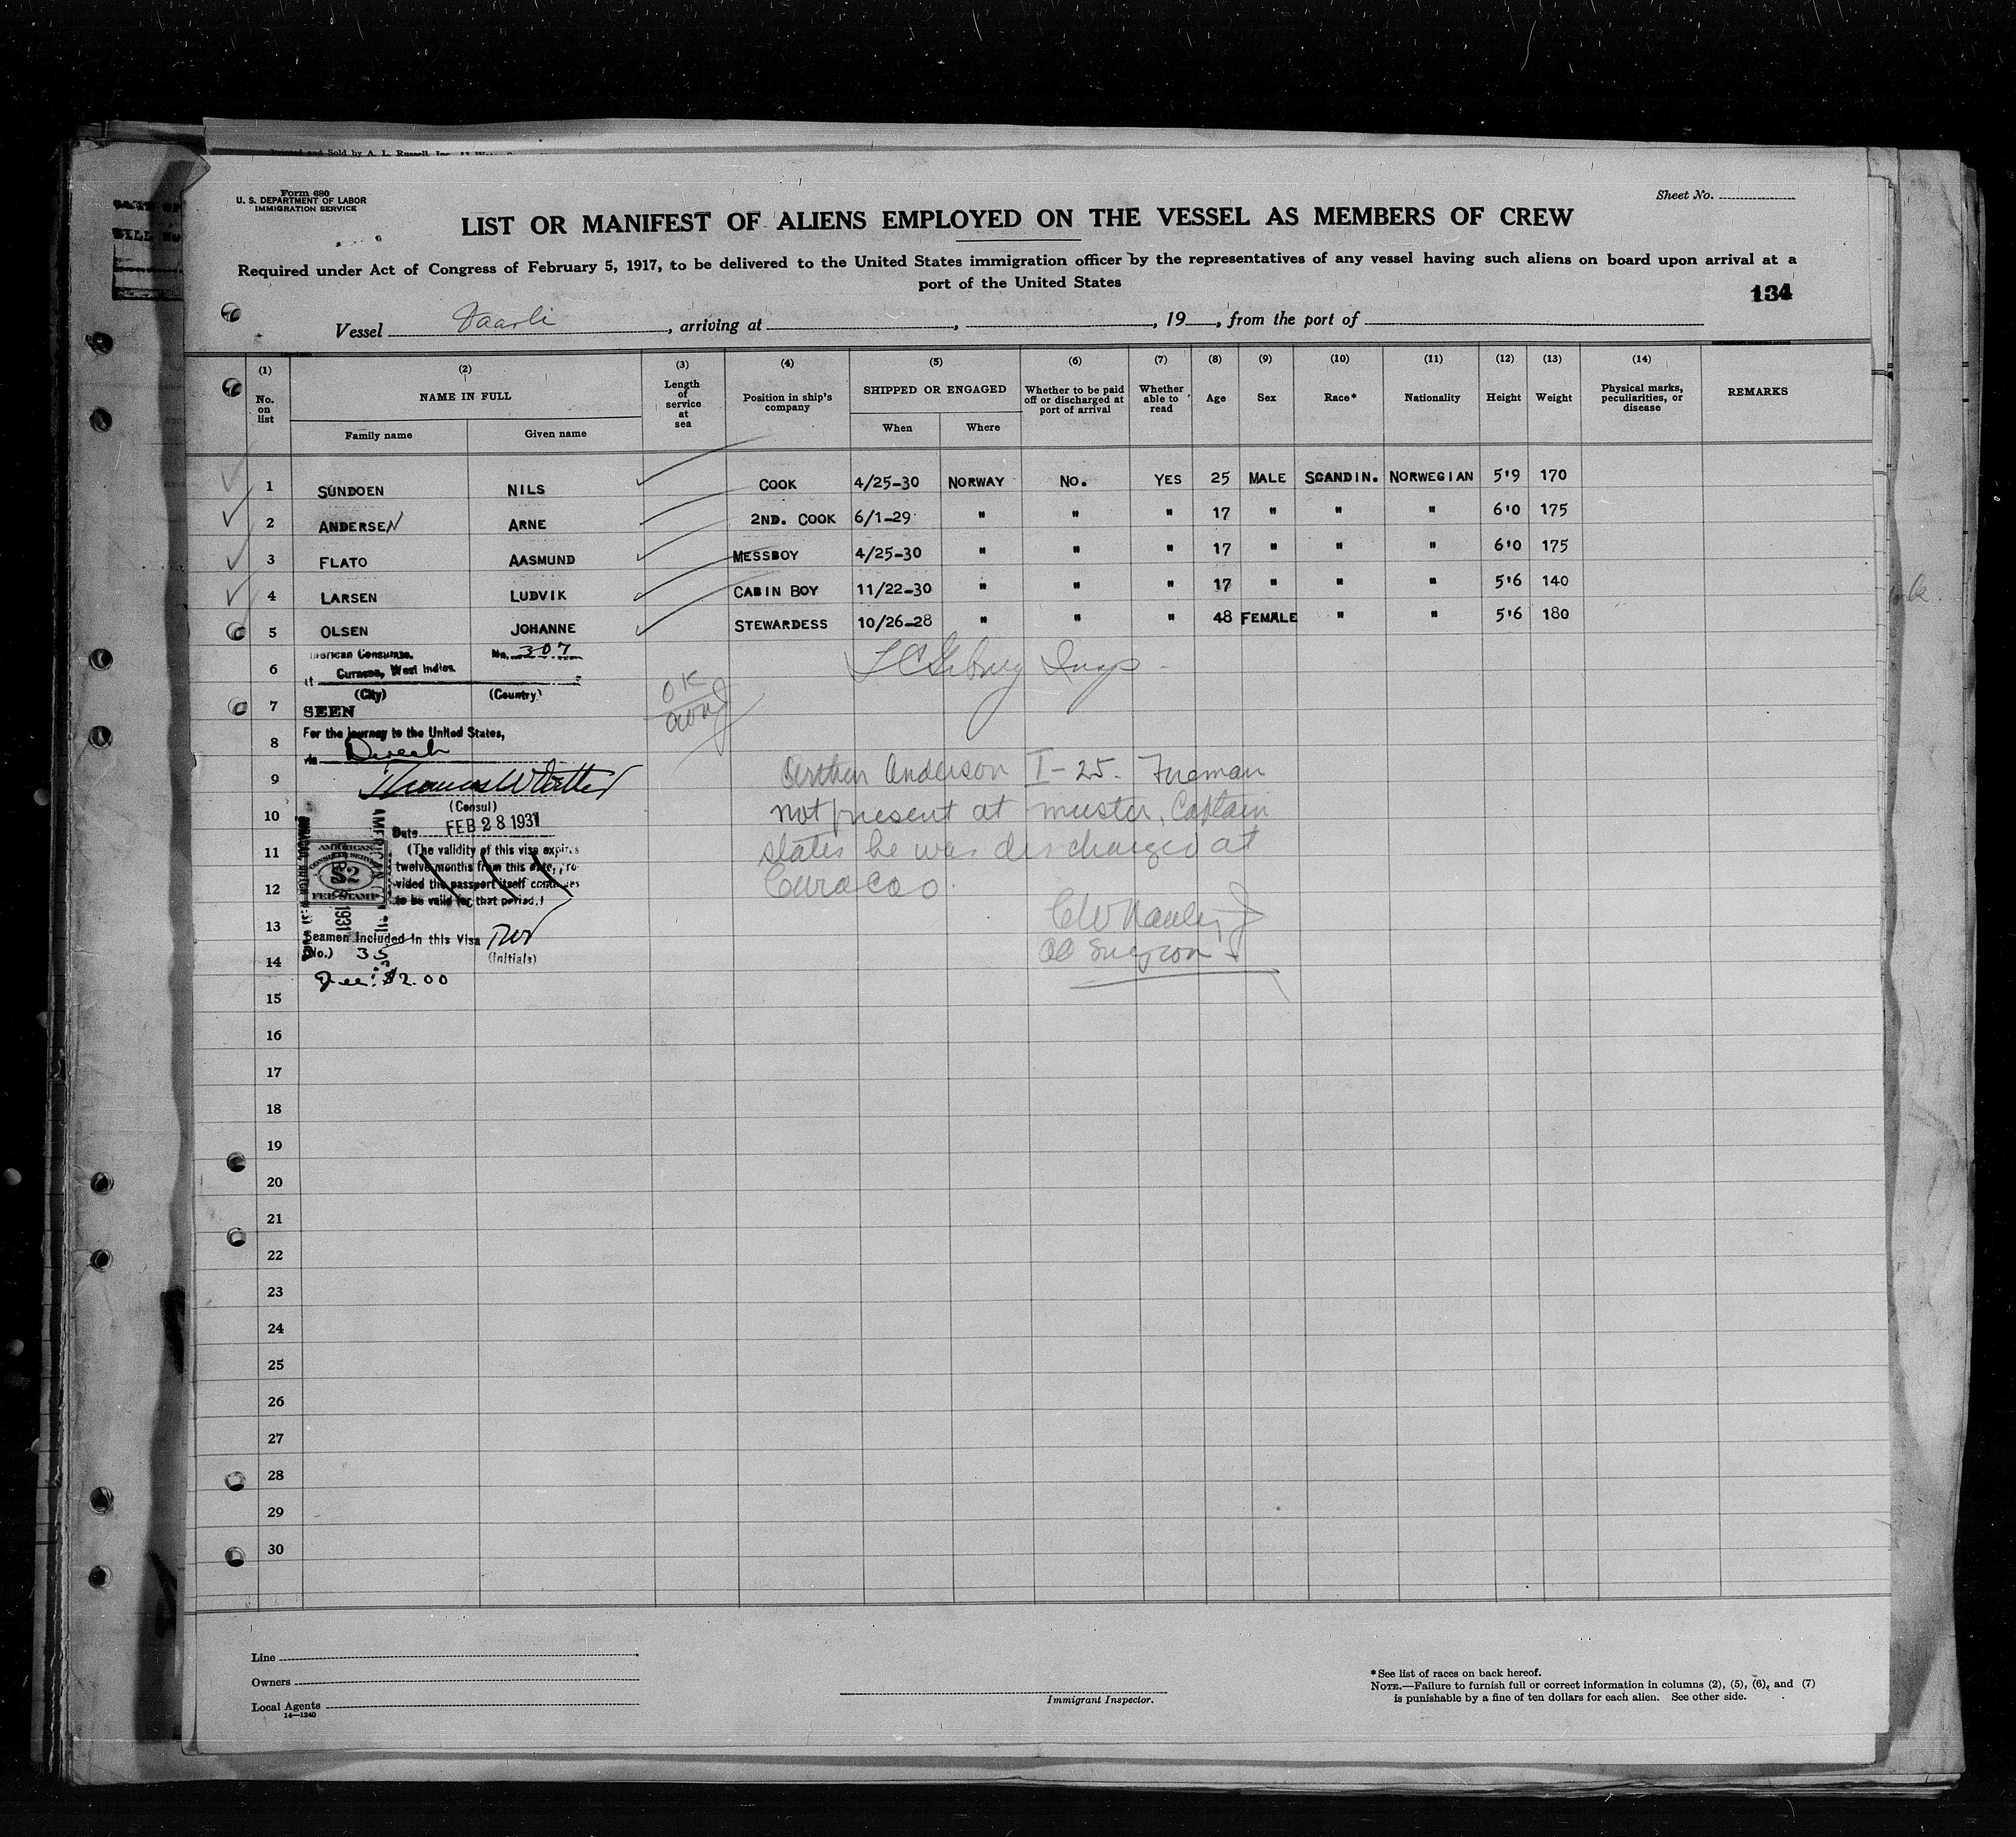 Printed and Sold by A. L. Russell, Inc.
Form 680
U. S. DEPARTMENT OF LABOR
IMMIGRATION SERVICE
Sheet No.
LIST OR MANIFEST OF ALIENS EMPLOYED ON THE VESSEL AS MEMBERS OF CREW
Required under Act of Congress of February 5, 1917, to be delivered to the United States immigration officer by the representatives of any vessel having such aliens on board upon arrival at a
port of the United States
134
Vessel , arriving at , , 19 , from the port of
(1) (2) (3) (4) (5) (6) (7) (8) (9) (10) (11) (12) (13) (14)
No. on list NAME IN FULL Length of service at sea Position in ship's company SHIPPED OR ENGAGED Whether to be paid off or discharged at port of arrival Whether able to read Age Sex Race* Nationality Height Weight Physical marks, peculiarities, or disease REMARKS
Family name Given name When Where
1 SUNDOEN NILS COOK 4/25-30 NORWAY No. YES 25 MALE SCANDIN. NORWEGIAN 5'9 170
2 ANDERSEN ARNE 2ND. COOK 6/1-29 " " " 17 " " " 6'0 175
3 FLATO AASMUND MESSBOY 4/25-30 " " " 17 " " " 6'0 175
4 LARSEN LUDVIK CABIN BOY 11/22-30 " " " 17 " " " 5'6 140
5 OLSEN JOHANNE STEWARDESS 10/26-28 " " " 48 FEMALE " " 5'6 180
American Consulate, No. 307
6 at Curacao, West Indies
(City) (Country)
OK
7 SEEN
8 For the journey to the United States,
via Direct
9 Arthur Anderson I-25. Fireman
(Consul)
10 not present at muster, Captain
Date FEB 28 1931
11 (The validity of this visa expires
states he was discharged at
twelve months from this date, pro-
12 vided the passport itself continues
Curacao.
to be valid for that period.)
AMERICAN
CONSULAR SERVICE
$2
FEE STAMP
13 Seamen Included in this Visa
(No.) 35 (Initials)
14 Surgeon
Fee: $2.00
15
16
17
18
19
20
21
22
23
24
25
26
27
28
29
30
Line
Owners
Local Agents
14—1240
Immigrant Inspector.
*See list of races on back hereof.
NOTE.—Failure to furnish full or correct information in columns (2), (5), (6), and (7)
is punishable by a fine of ten dollars for each alien. See other side.